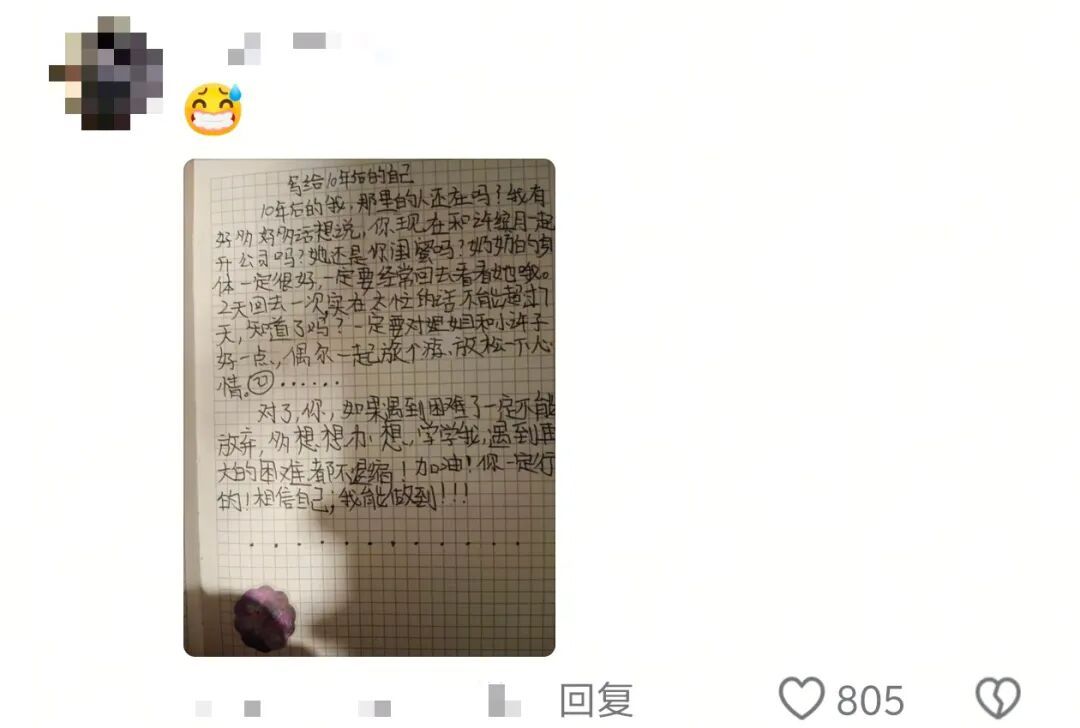 写给10年后的自己
10年后的我，那里的人还在吗？我有
好多好多话想说，你现在和许绽月一起
开公司吗？她还是你闺蜜吗？奶奶的身
体一定很好，一定要经常回去看看她哦。
2天回去一次，实在太忙的话不能超过7
天，知道了吗？一定要对姐姐和小许子
好一点，偶尔一起旅个游、放松一下心
情。……
对了，你，如果遇到困难了一定不能
放弃，多想想办 想，学学我，遇到再
大的困难都不退缩！加油！你一定行
的！相信自己，我能做到！！！
回复 805